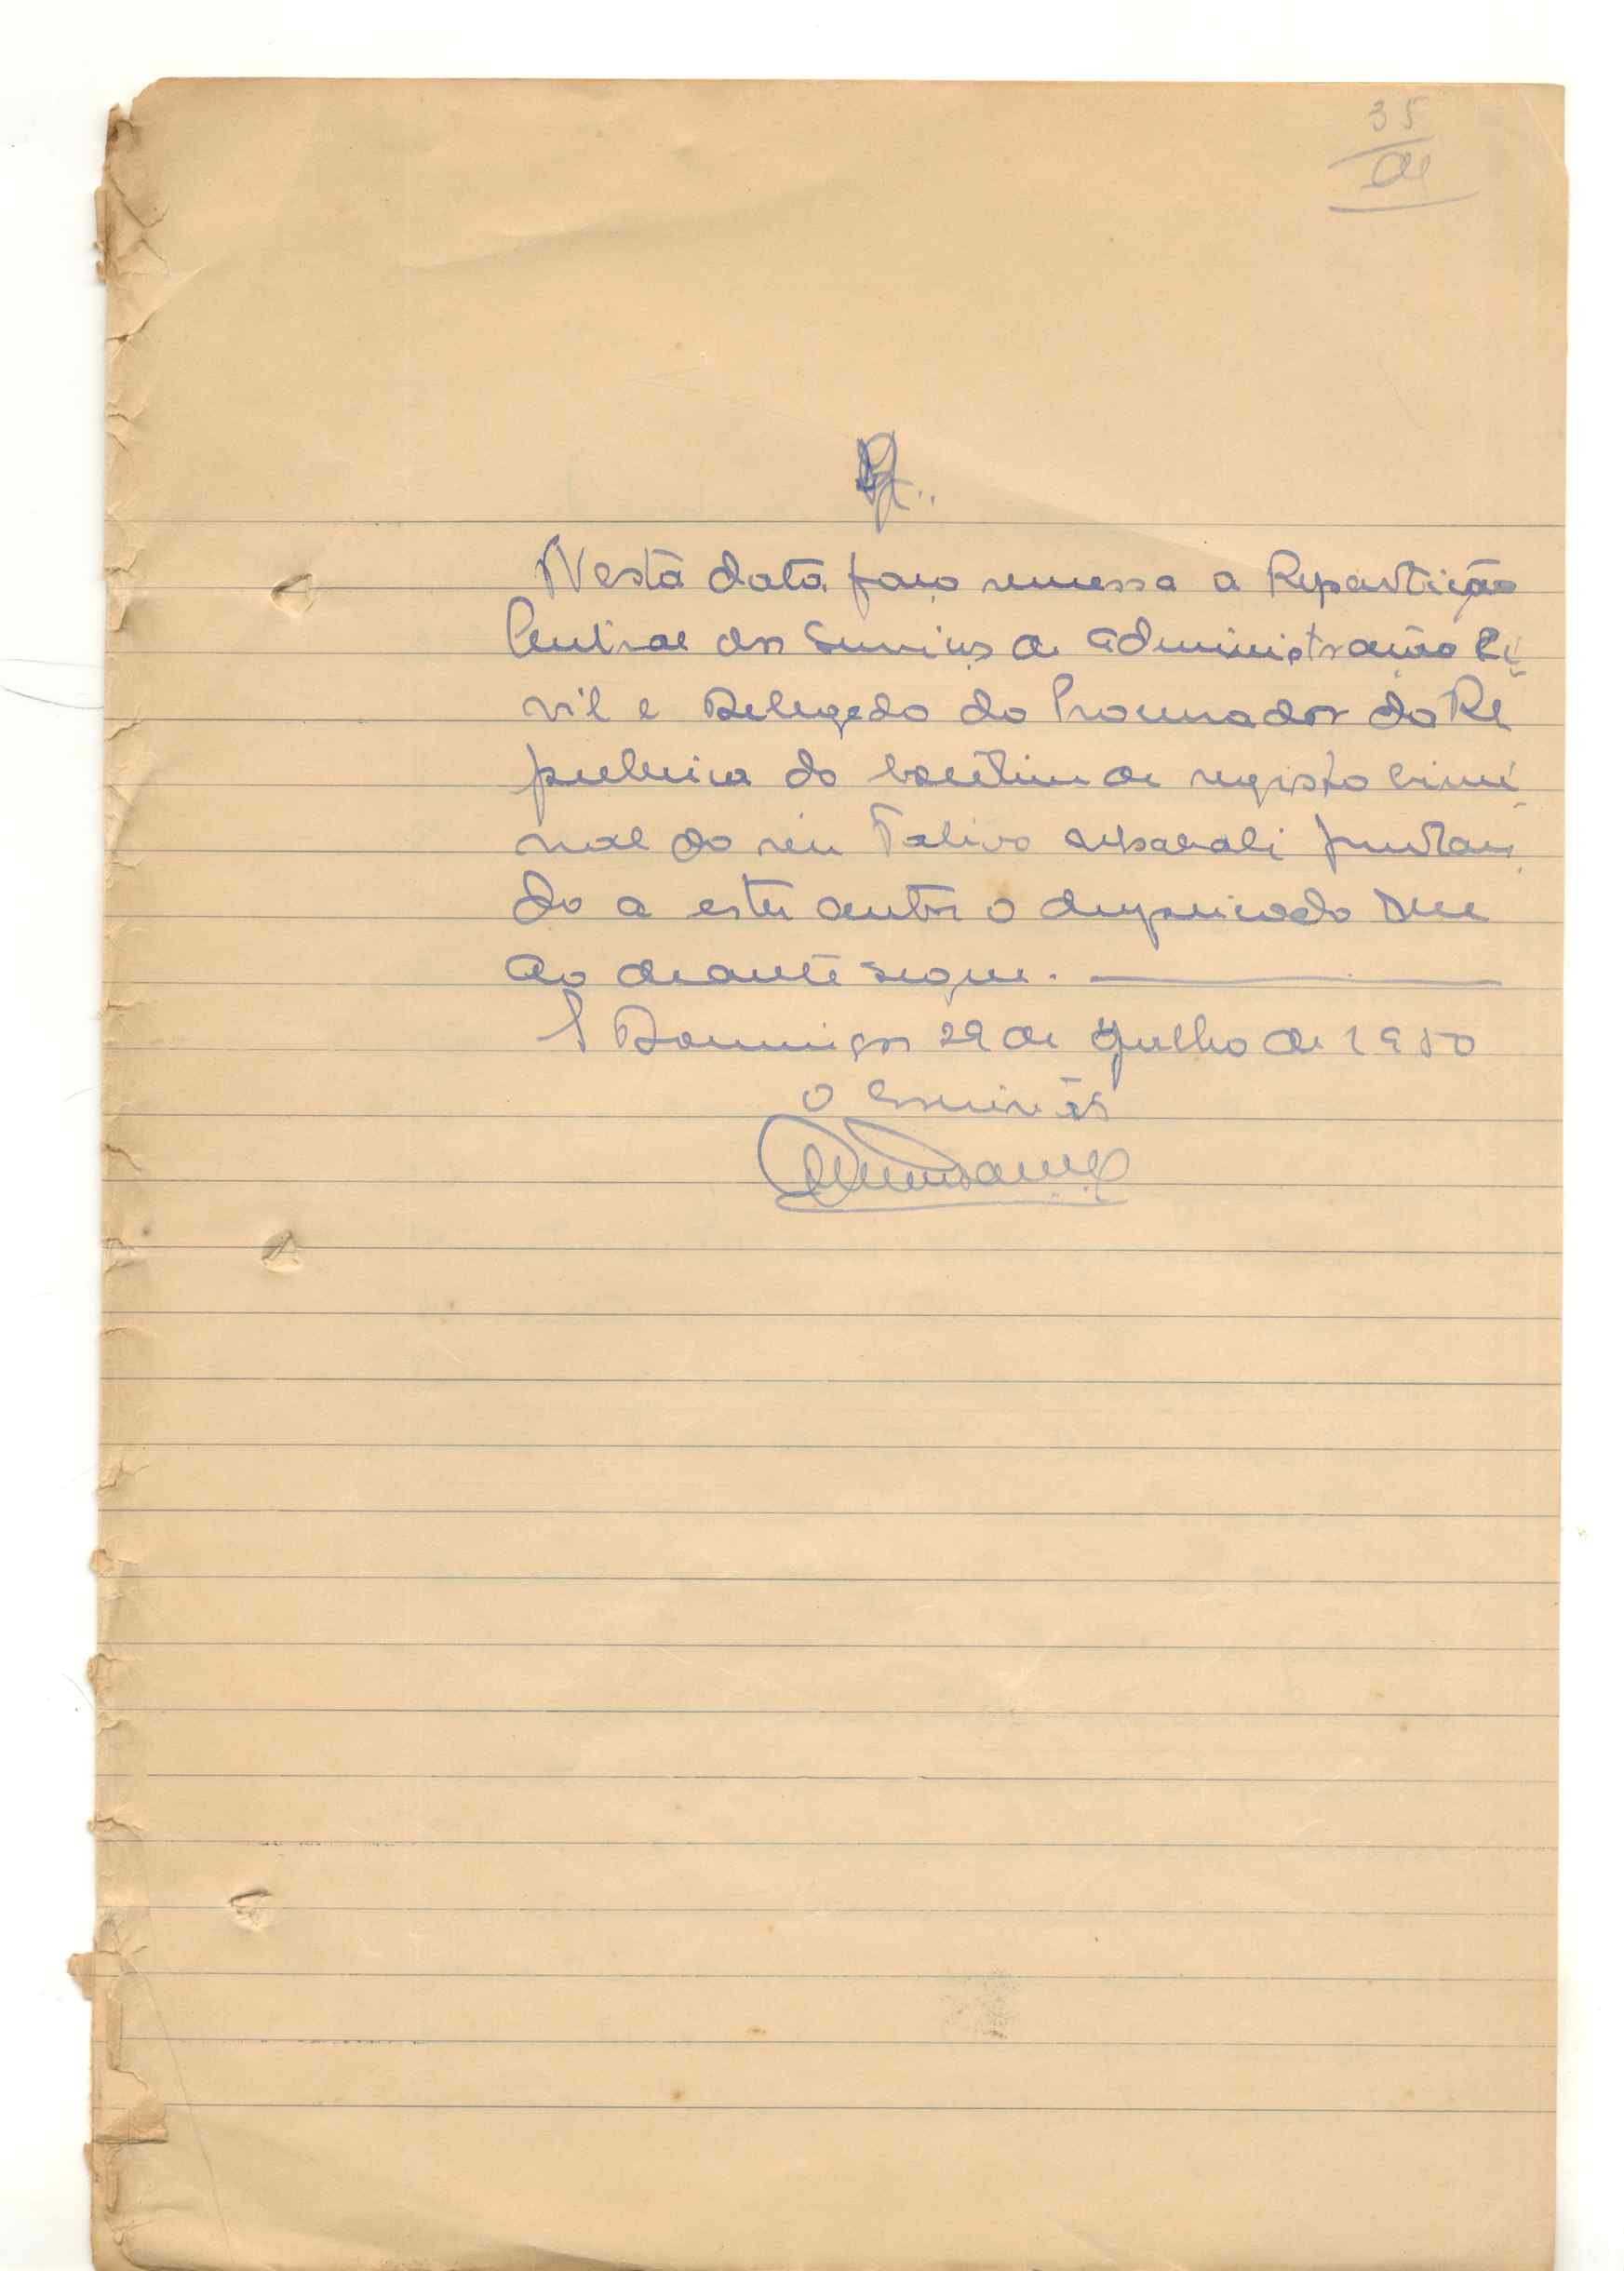 35
Nesta data faço remessa a Repartição
Central dos Serviços de Administração Ci
vil e Delegado do Procurador da Re
publica do boletim de registo crimi
nal do réu Falivo juntan
do a estes autos o duplicado que
ao deante segue.
S Domingos 29 de Julho de 1950
O Escrivão